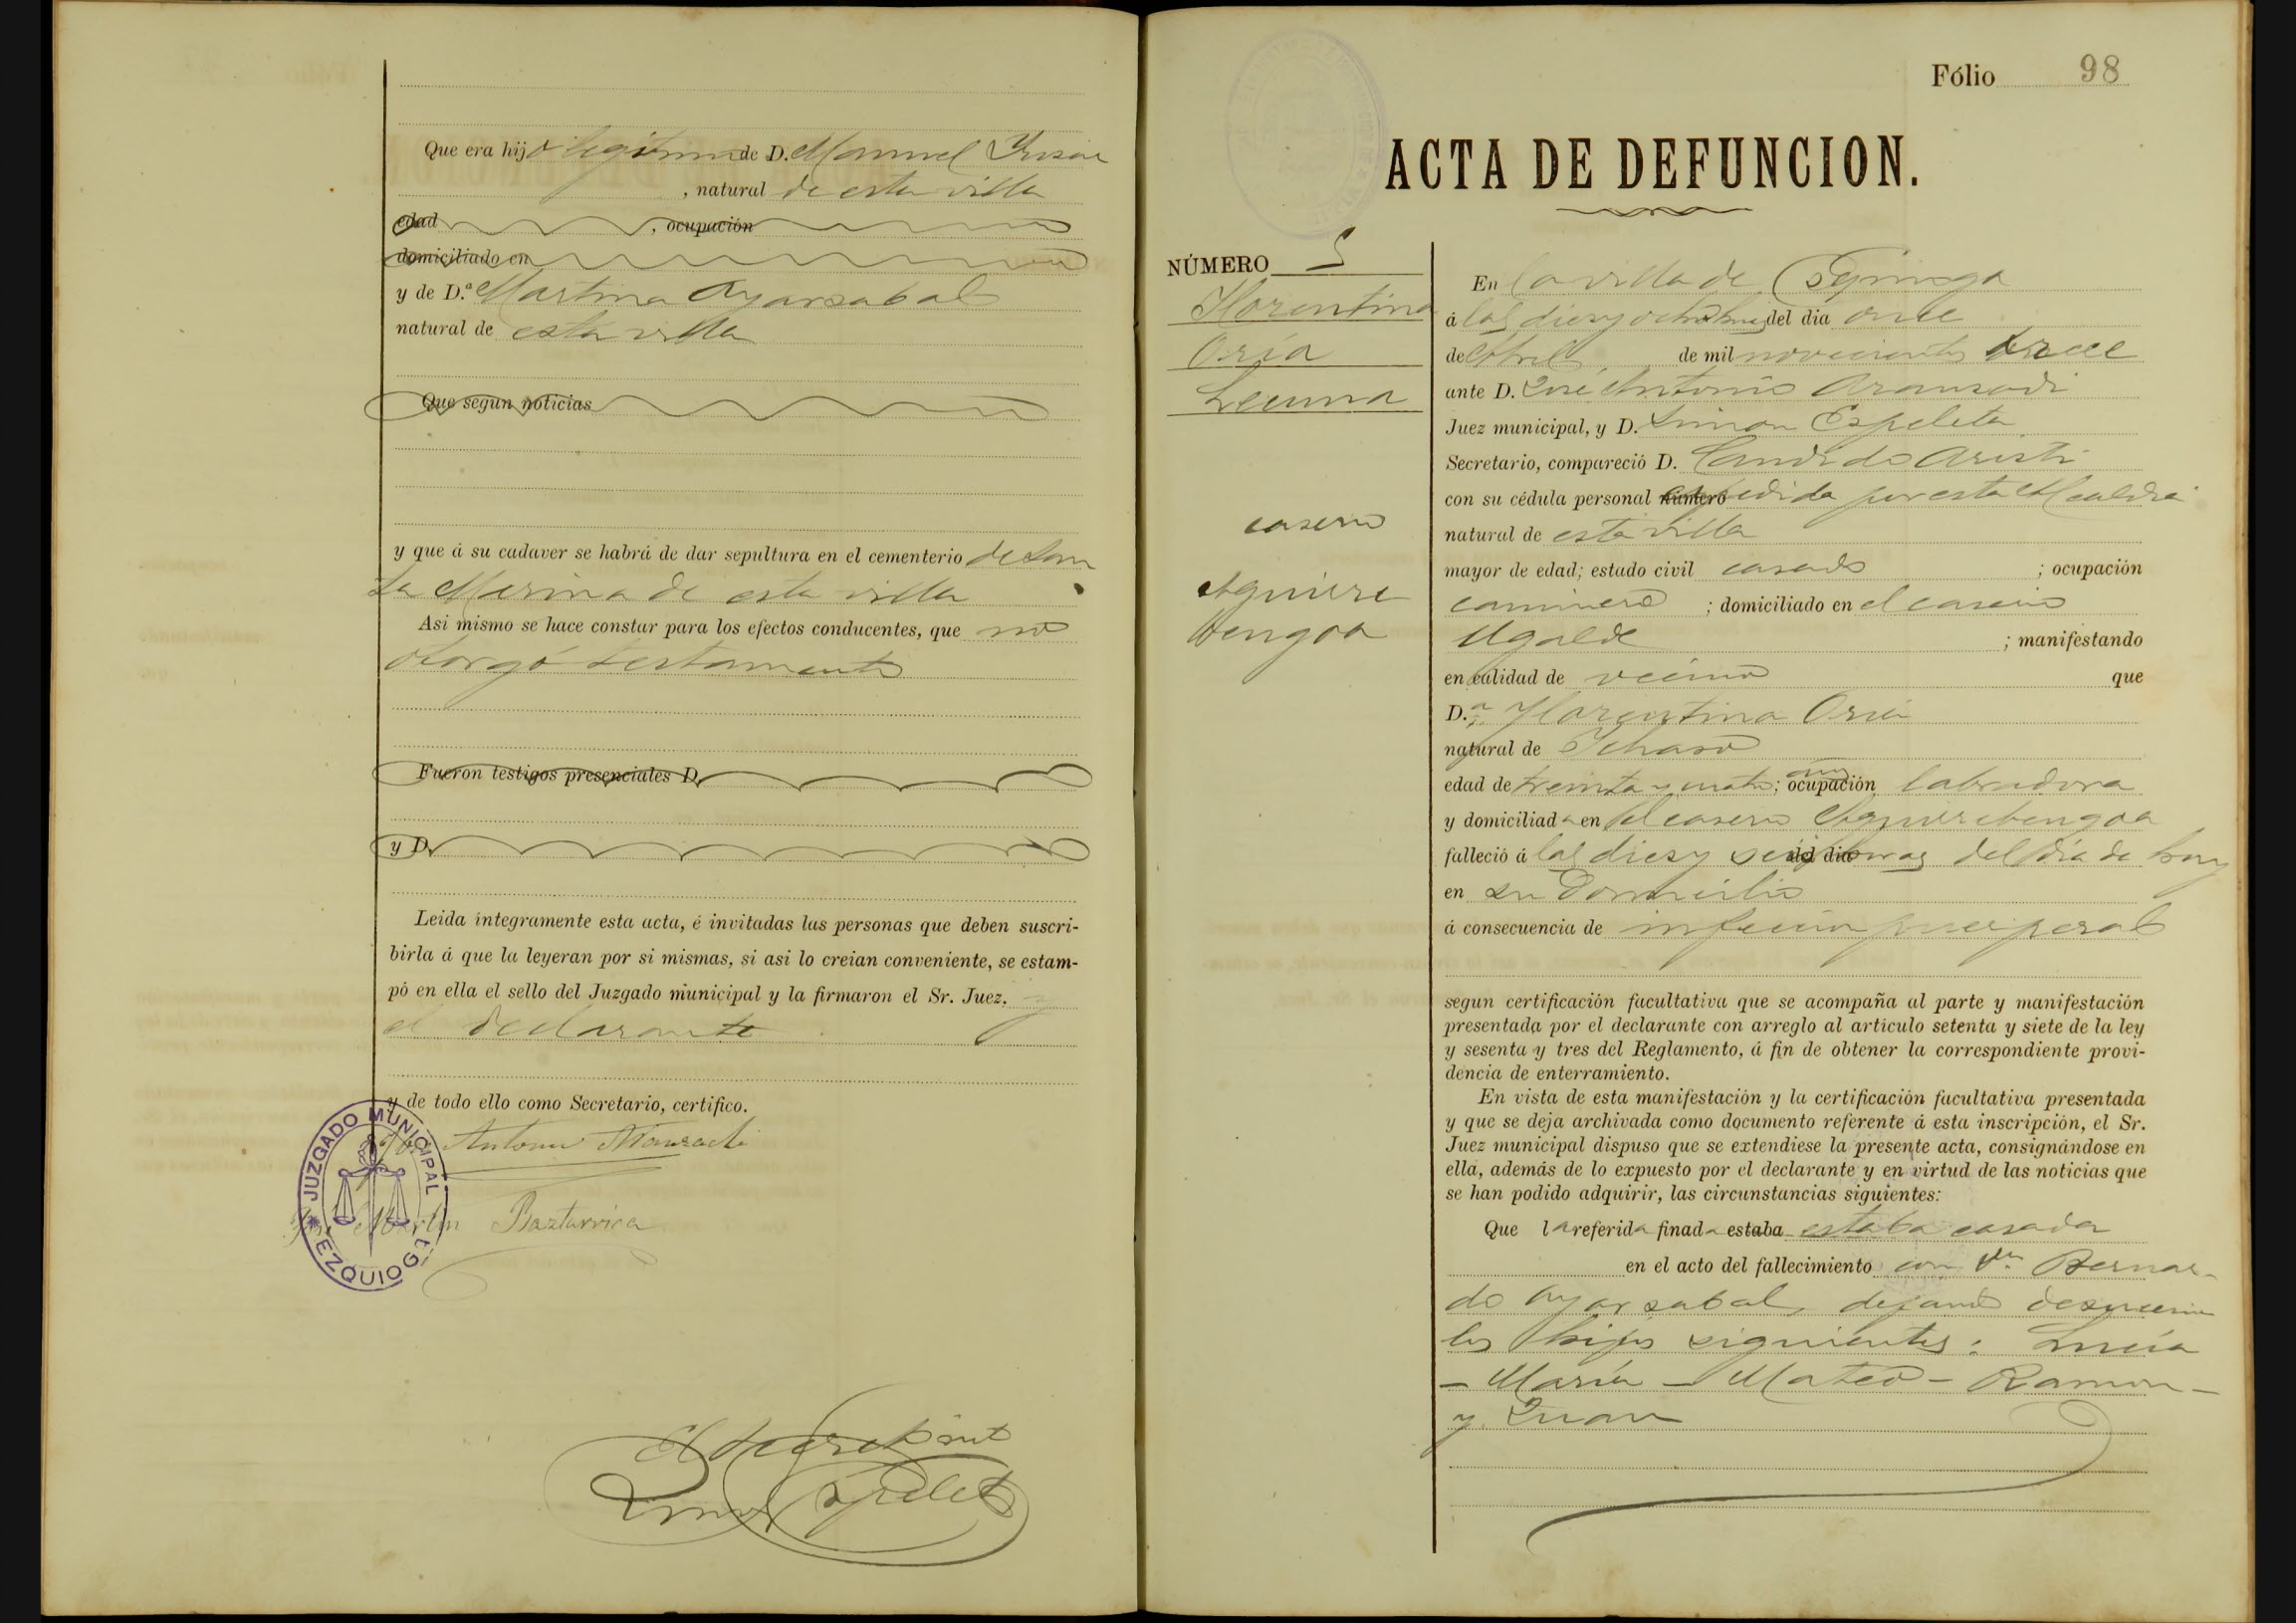 Que era hijo legítimo de D. Manuel Yrizar
, natural de esta villa
edad , ocupación
domiciliado en
y de D.ª Martina Oyarzabal
natural de esta villa
Que segun noticias
y que á su cadaver se habrá de dar sepultura en el cementerio de San
ta Marina de esta villa
Asi mismo se hace constar para los efectos conducentes, que no
otorgó testamento
Fueron testigos presenciales D.
y D.
Leida íntegramente esta acta, é invitadas las personas que deben suscri-
birla á que la leyeran por si mismas, si asi lo creian conveniente, se estam-
pó en ella el sello del Juzgado municipal y la firmaron el Sr. Juez. y
el declarante
y de todo ello como Secretario, certifico.
JUZGADO MUNICIPAL
José Antonio Aranzadi
José Martin Bazturrica
El Secretario
Simon Espeleta
Fólio 98
ACTA DE DEFUNCION.
NÚMERO 5
Florentina
Oria
Lecuna
caserio
Aguirre
bengoa
En la villa de
á las diez y ocho horas del dia once
de Abril de mil novecientos trece
ante D. José Antonio Aranzadi
Juez municipal, y D. Simon Espeleta
Secretario, compareció D. Candido Aristi
con su cédula personal número expedida por esta Alcaldia
natural de esta villa
mayor de edad; estado civil casado ; ocupación
caminero ; domiciliado en el caserio
Ugalde ; manifestando
en calidad de vecino que
D.ª Florentina Oria
natural de Ichaso
edad de treinta y cuatro años; ocupación labradora
y domiciliada en el caserio Aguirrebengoa
falleció á las diez y seis horas del dia del día de hoy
en su domicilio
á consecuencia de infección puerperal
segun certificación facultativa que se acompaña al parte y manifestación
presentada por el declarante con arreglo al articulo setenta y siete de la ley
y sesenta y tres del Reglamento, á fin de obtener la correspondiente provi-
dencia de enterramiento.
En vista de esta manifestación y la certificación facultativa presentada
y que se deja archivada como documento referente á esta inscripción, el Sr.
Juez municipal dispuso que se extendiese la presente acta, consignándose en
ella, además de lo expuesto por el declarante y en virtud de las noticias que
se han podido adquirir, las circunstancias siguientes:
Que la referida finada estaba estaba casada
en el acto del fallecimiento con Dn. Bernar-
do Oyarzabal, dejando
los hijos siguientes: Lucia
- María - Mateo - Ramon -
y Juan